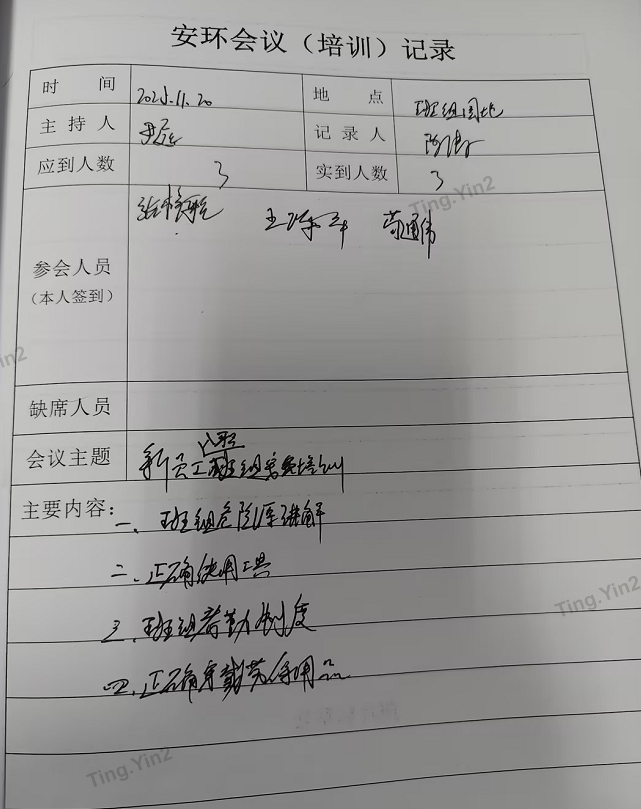 安环会议（培训）记录
时 间 地 点 班组园地
主持人 记录人
应到人数 3 实到人数 3
Ting.Yin2
参会人员
（本人签到）
缺席人员
会议主题 新员工入职班组安全培训
主要内容：
一、班组危险源讲解
二、正确使用工具
三、班组考勤制度
四、正确穿戴劳保用品
Ting.Yin2
Ting.Yin2